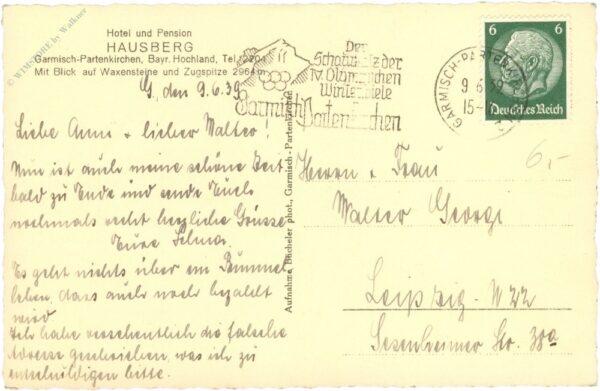 Hotel und Pension
HAUSBERG
Garmisch-Partenkirchen, Bayr. Hochland, Tel. 2204
Mit Blick auf Waxensteine und Zugspitze 2964 m
G, den 9.6.39
Liebe Anne + lieber Walter!
Nun ist auch meine schöne Zeit
bald zu Ende und sende Euch
nochmals recht herzliche Grüsse
Eure Selma.
Es geht nichts über ein Bummel
leben, dass auch noch bezahlt
wird
Ich habe versehentlich die falsche
Adresse geschrieben, was ich zu
entschuldigen bitte.
Aufnahme Bücheler phot., Garmisch-Partenkirchen
Der
Schauplatz der
IV. Olympischen
Winterspiele
Garmisch
Partenkirchen
GARMISCH-PARTENKIRCHEN
9.6.39
15-
6 6
Deutsches Reich
6,-
Herrn + Frau
Walter George
Leipzig-W 22
Sesenheimer Str. 30a
© WIMSTORE by Walkner